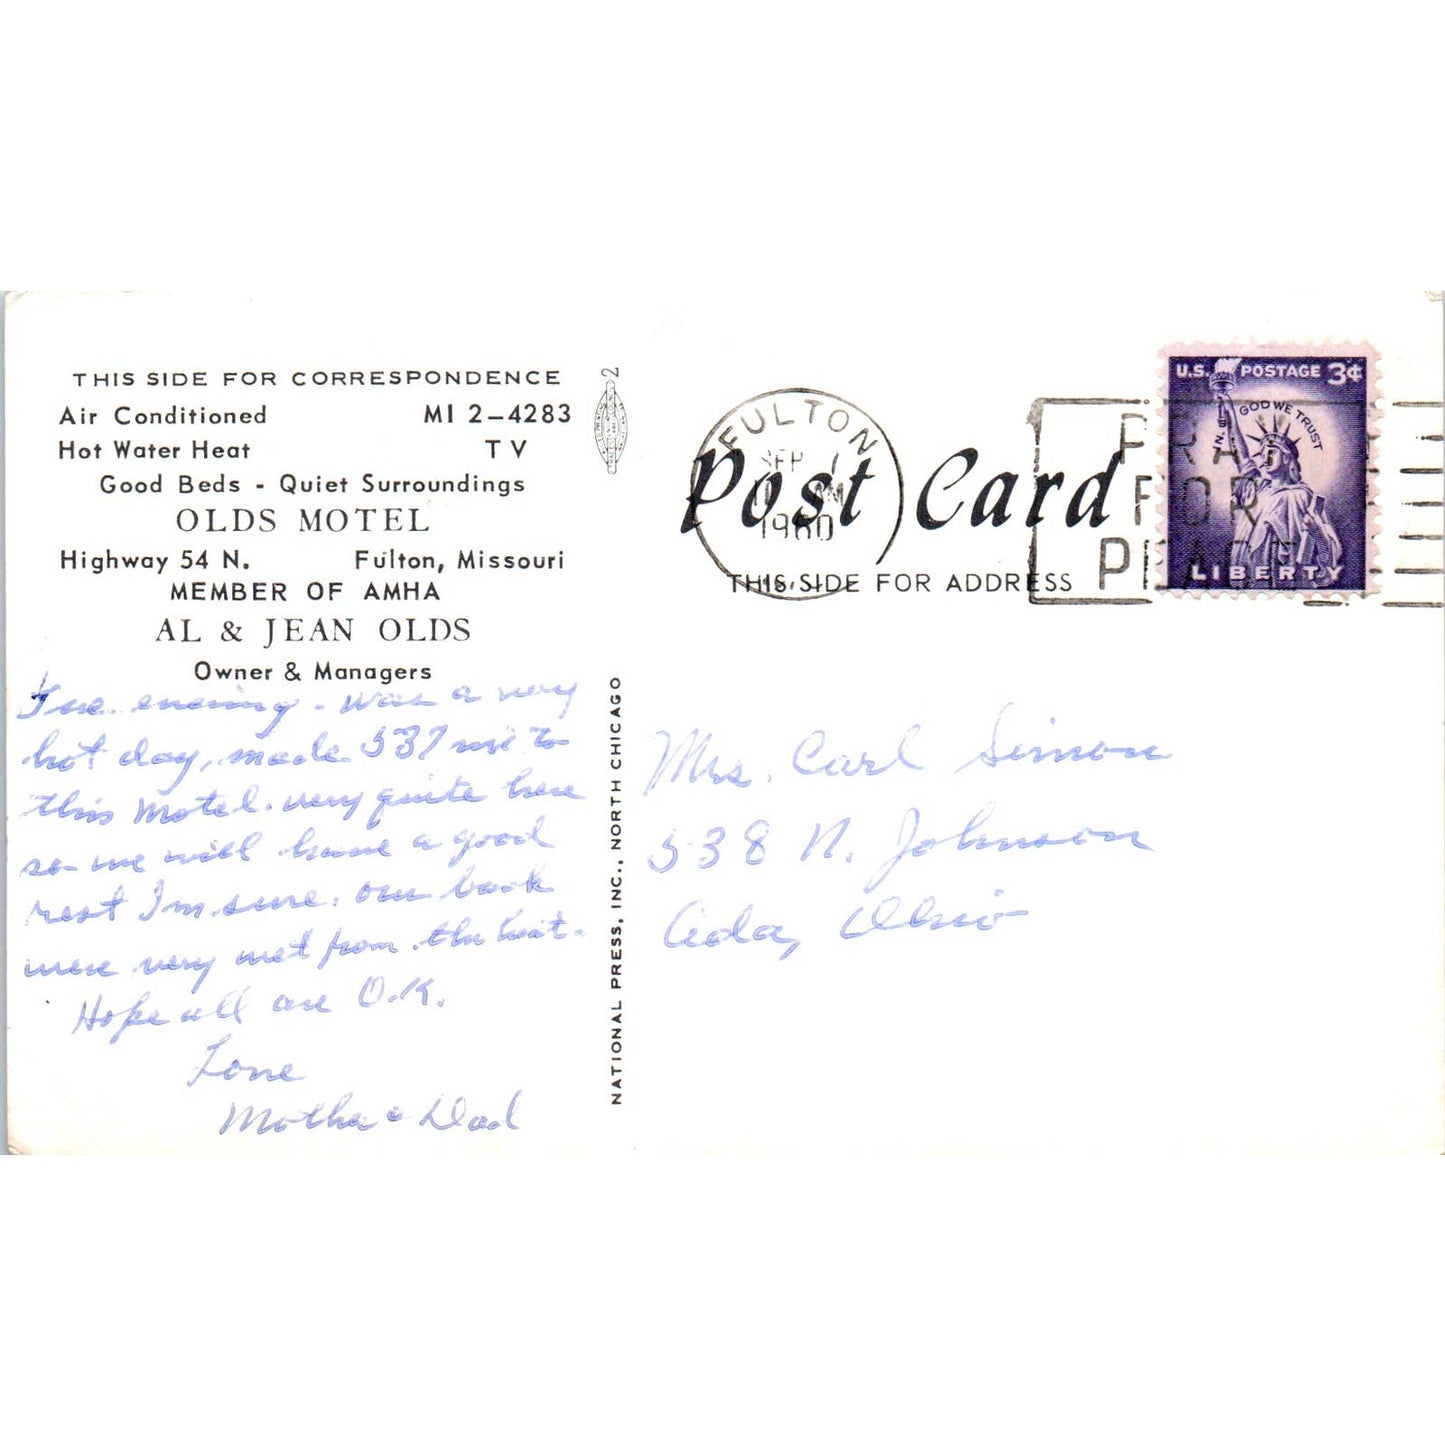 THIS SIDE FOR CORRESPONDENCE
Air Conditioned MI 2-4283
Hot Water Heat TV
Good Beds - Quiet Surroundings
OLDS MOTEL
Highway 54 N. Fulton, Missouri
MEMBER OF AMHA
AL & JEAN OLDS
Owner & Managers
Tue. evening - was a very
hot day, made 537 mi to
this Motel. very quite here
so we will have a good
rest I'm sure. our back
were very wet from the heat-
Hope all are O.K.
Love
Mother & Dad
2
NATIONAL PRESS, INC., NORTH CHICAGO
FULTON
SEP 1
AM
1960
MO.
Post Card
THIS SIDE FOR ADDRESS
PRAY
FOR
PEACE
U.S. POSTAGE 3¢
IN GOD WE TRUST
LIBERTY
Mrs. Carl Simon
538 N. Johnson
Ada, Ohio